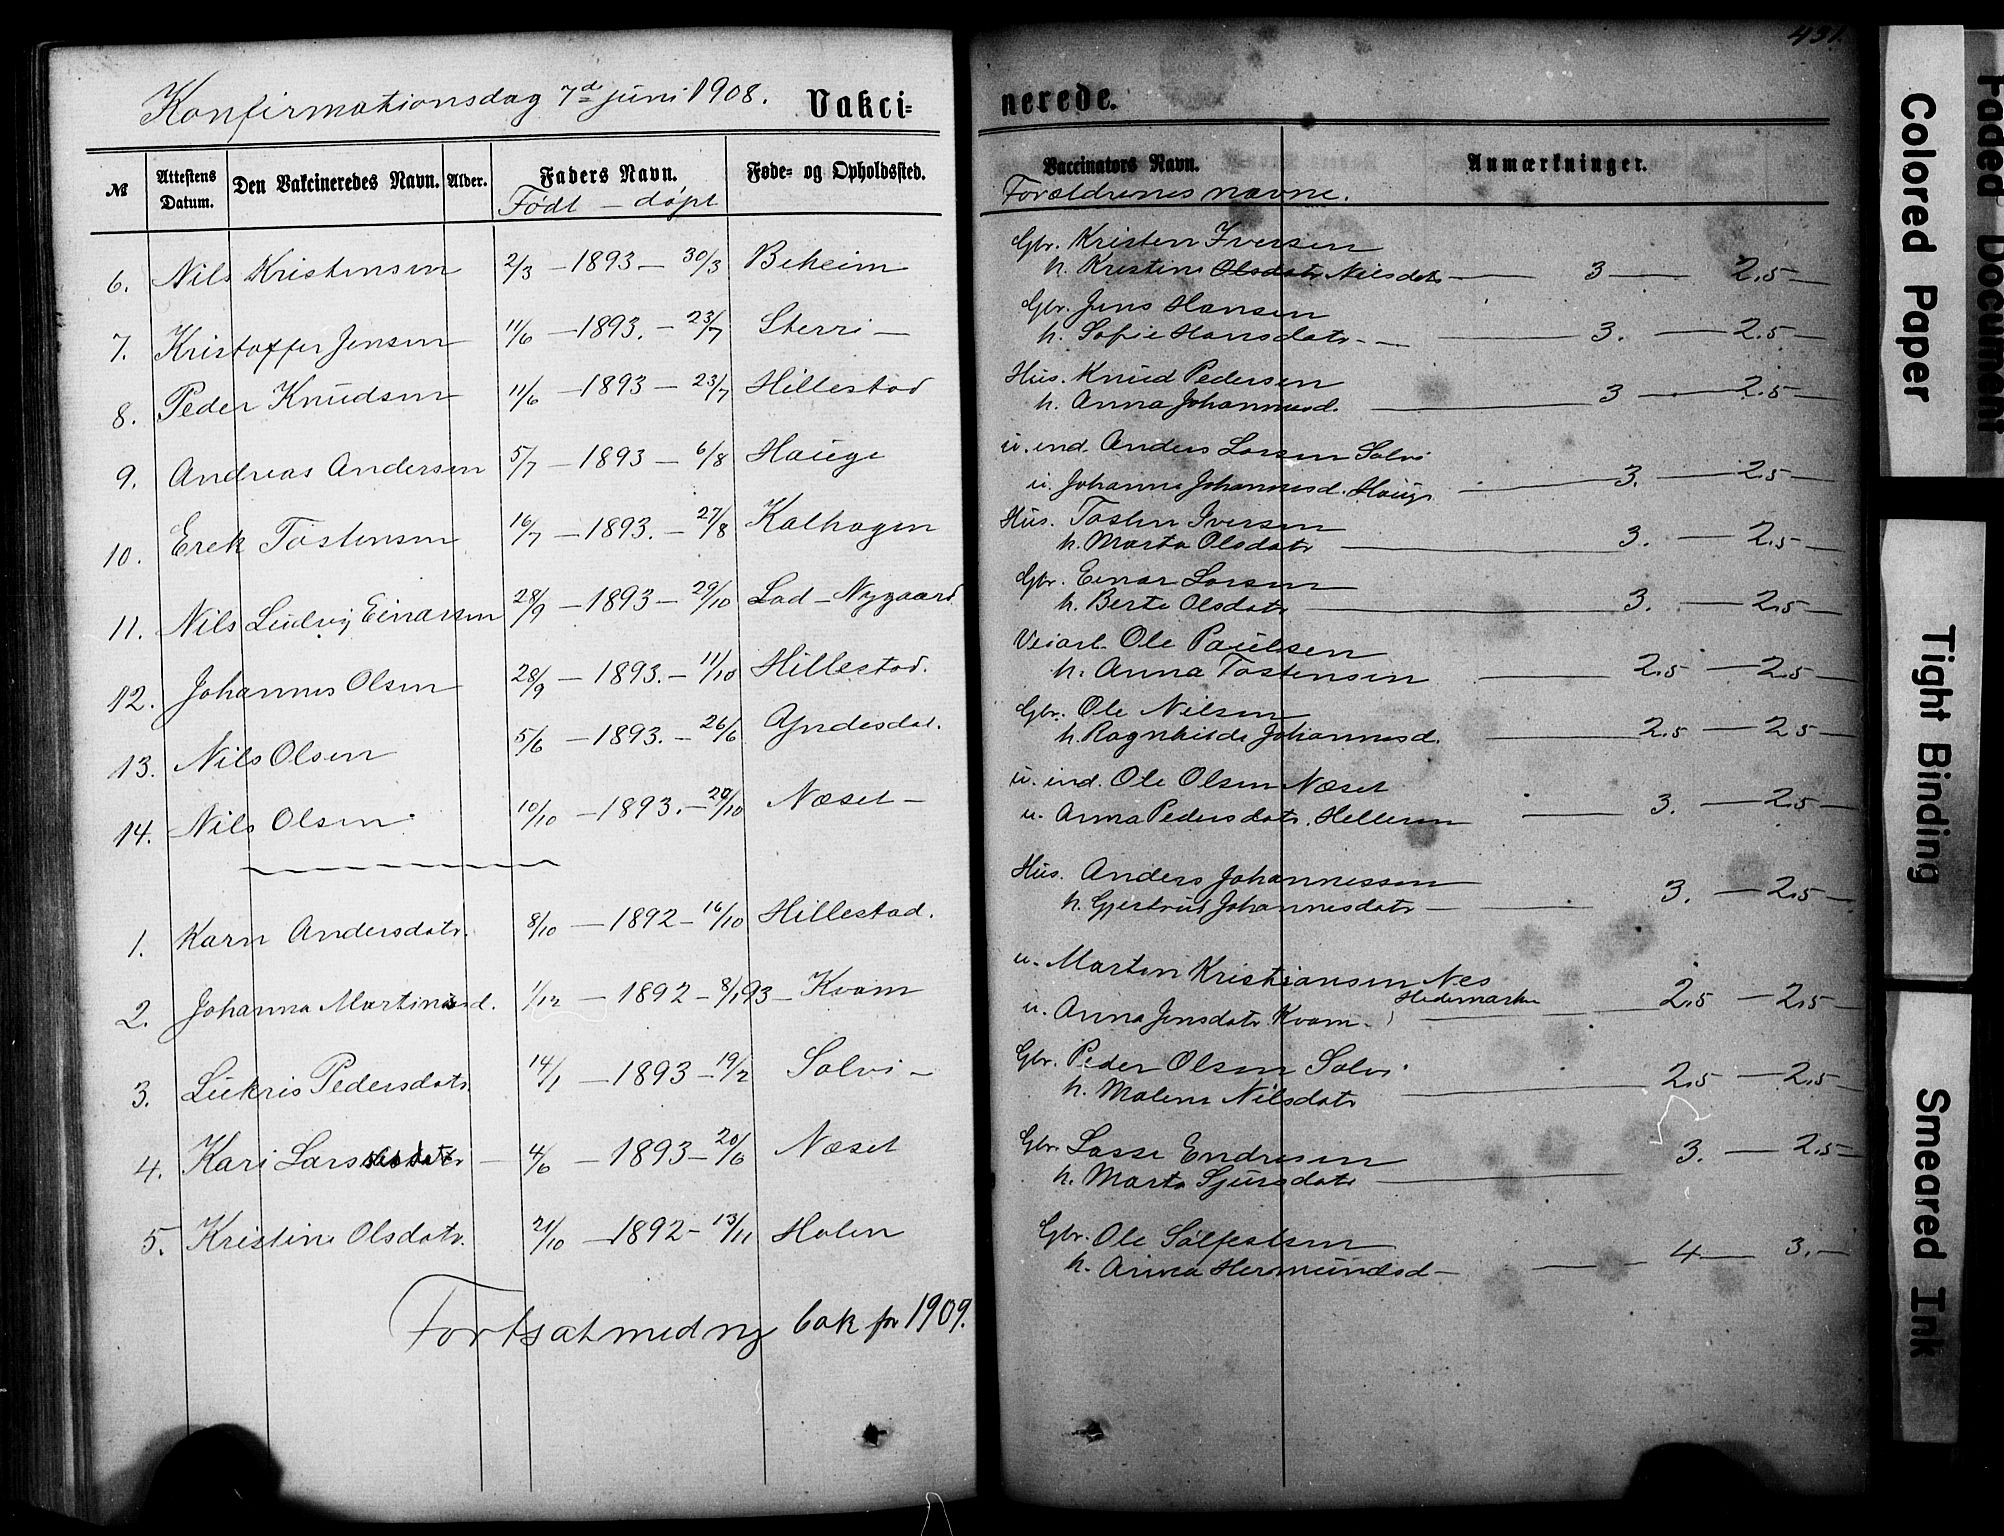 Konfirmationsdag 7de juni 1908.
Vakci=
nerede.
431.
№
Attestens Datum.
Den Vakcineredes Navn.
Alder.
Faders Navn.
Føde- og Opholdssted.
Født – døpt
Vaccinators Navn.
Anmærkninger.
Forældrenes navne.
6. Nils Kristensen 2/3 – 1893 – 30/3 Beheim
Gbr. Kristen Iversen
h. Kristine Olsdatr Nilsdatr — 3 — 2.5 —
7. Kristoffer Jensen 11/6 – 1893. – 23/7 Sterri –
Gbr. Jens Hansen
h. Sofie Hansdatr — 3. — 2.5 —
8. Peder Knudsen 11/6 – 1893 – 23/7 Hillestad
Hus. Knud Pedersen
h. Anna Johannesd. — 3 — 2.5 —
9. Andreas Andersen 5/7 – 1893 – 6/8 Hauge
u. ind. Anders Larsen Solvi
u. Johanna Johannesd. Hauge — 3. — 2.5 —
10. Erek Tostensen 16/7 – 1893. – 27/8 Kalhagen
Hus. Tosten Iversen
h. Marta Olsdatr — 3. — 2.5 —
11. Nils Ludvig Einarsen 28/9 – 1893 – 29/10 Lad – Nygaard
Gbr. Einar Larsen
h. Berte Olsdatr — 3. — 2.5 —
12. Johannes Olsen 28/9 – 1893. – 11/10 Hillestad.
Veiarb. Ole Paulsen
h. Anna Tostensen — 2.5 — 2.5 —
13. Nils Olsen 5/6 – 1893. – 26/6 Yndesdal.
Gbr. Ole Nilsen
h. Ragnhilde Johannesd. — 2.5 — 2.5 —
14. Nils Olsen 10/10 – 1893. – 29/10 Næset –
u. ind. Ole Olsen Næset
u. Anna Pedersdatr. Helleren — 3. — 2.5 —
1. Karn Andersdatr. 8/10 – 1892 – 16/10 Hillestad.
Hus. Anders Johannessen
h. Gjertrud Johannesdatr — 3. — 2.5 —
2. Johanna Martinsd. 1/12 – 1892 – 8/1 93 – Kvam
u. Martin Kristiansen Nes
Hedemarken
u. Anna Jensdatr Kvam. — 2.5 — 2.5 —
3. Lukris Pedersdatr. 14/1 – 1893 – 19/2 Solvi –
Gbr. Peder Olsen Solvi
h. Malene Nilsdatr — 2.5 — 2.5 —
4. Kari Larsdatr – 4/6 – 1893 – 20/6 Næset
Gbr. Lasse Endresen
h. Marta Sjursdatr — 3. — 2.5 —
5. Kristine Olsdatr. 21/10 – 1892 – 13/11 Holen
Gbr. Ole Sølfestsen
h. Anna Hermundsd — 4 — 3. —
Fortsat med ny bok for 1909.
Faded Document
Colored Paper
Tight Binding
Smeared Ink